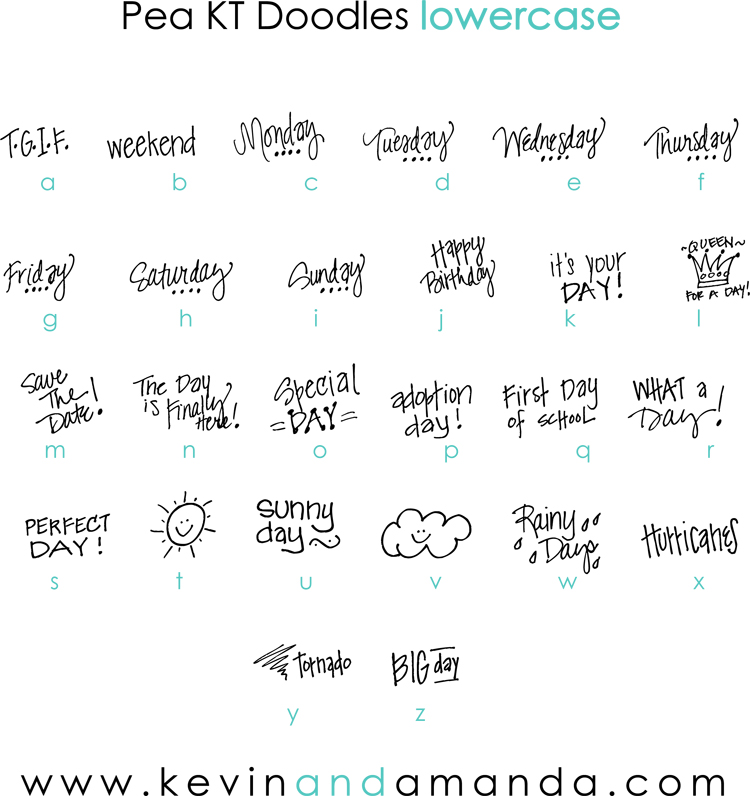 Pea KT Doodles lowercase
T.G.I.F. weekend Monday Tuesday Wednesday Thursday
a b c d e f
Friday Saturday Sunday Happy Birthday it's your DAY! ~QUEEN~ FOR A DAY!
g h i j k l
Save The Date! The Day is Finally Here! Special =DAY= adoption day! First Day of SCHOOL WHAT a Day!
m n o p q r
PERFECT DAY! sunny day~ Rainy Days Hurricanes
s t u v w x
tornado BIG day
y z
www.kevinandamanda.com